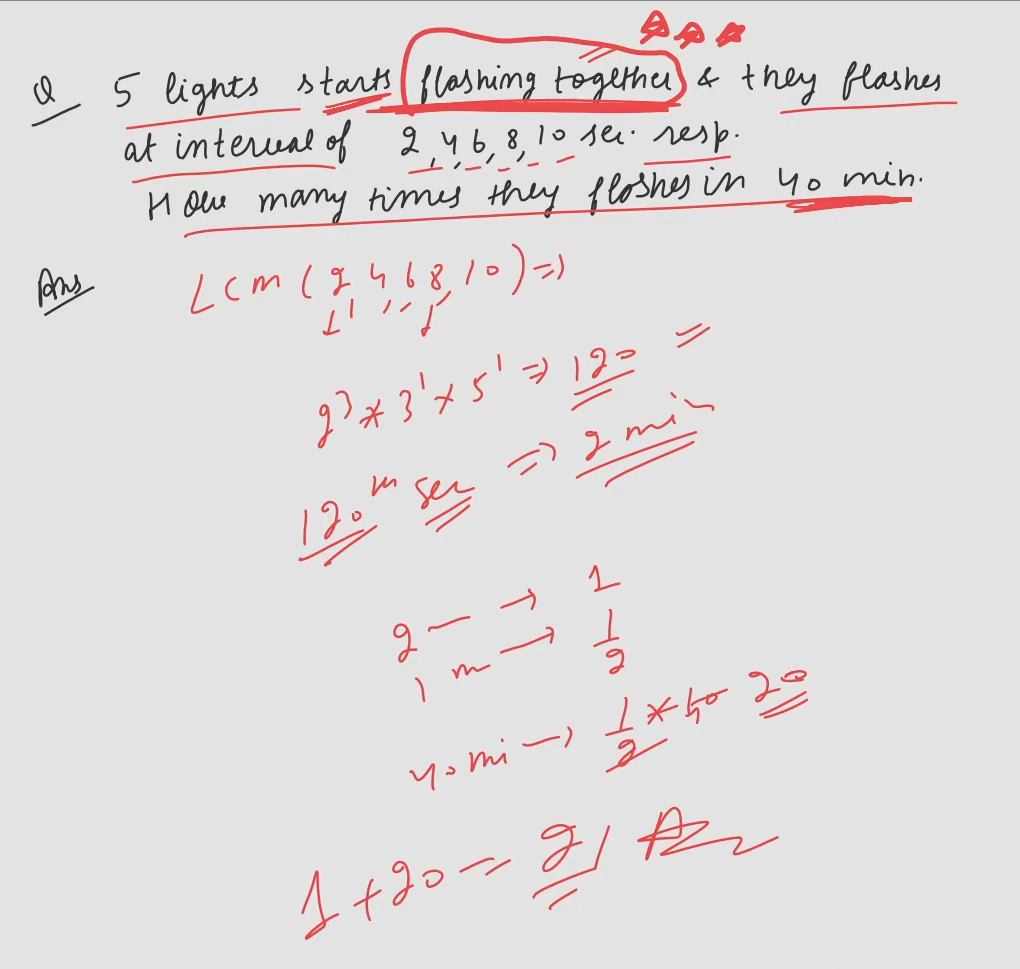 Q 5 lights starts flashing together & they flashes
at interval of 2, 4, 6, 8, 10 sec. resp.
How many times they flashes in 40 min.
Ans LCM (2 4 6 8, 10) =>
2³ × 3¹ × 5¹ => 120
120 sec => 2 min
2 → 1
1 m → 1/2
40 mi → 1/2 × 40 20
1 + 20 = 21 A